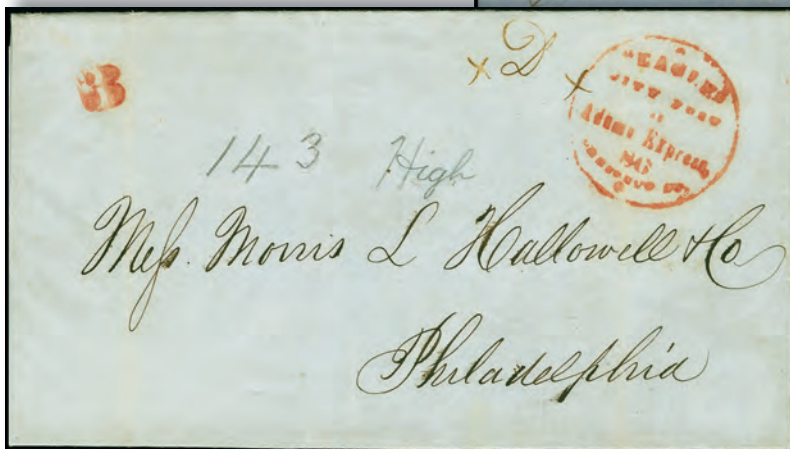 B
x D x
EAGLE
CITY POST
Adams Express
143 High
Mess. Morris L Hallowell & Co
Philadelphia